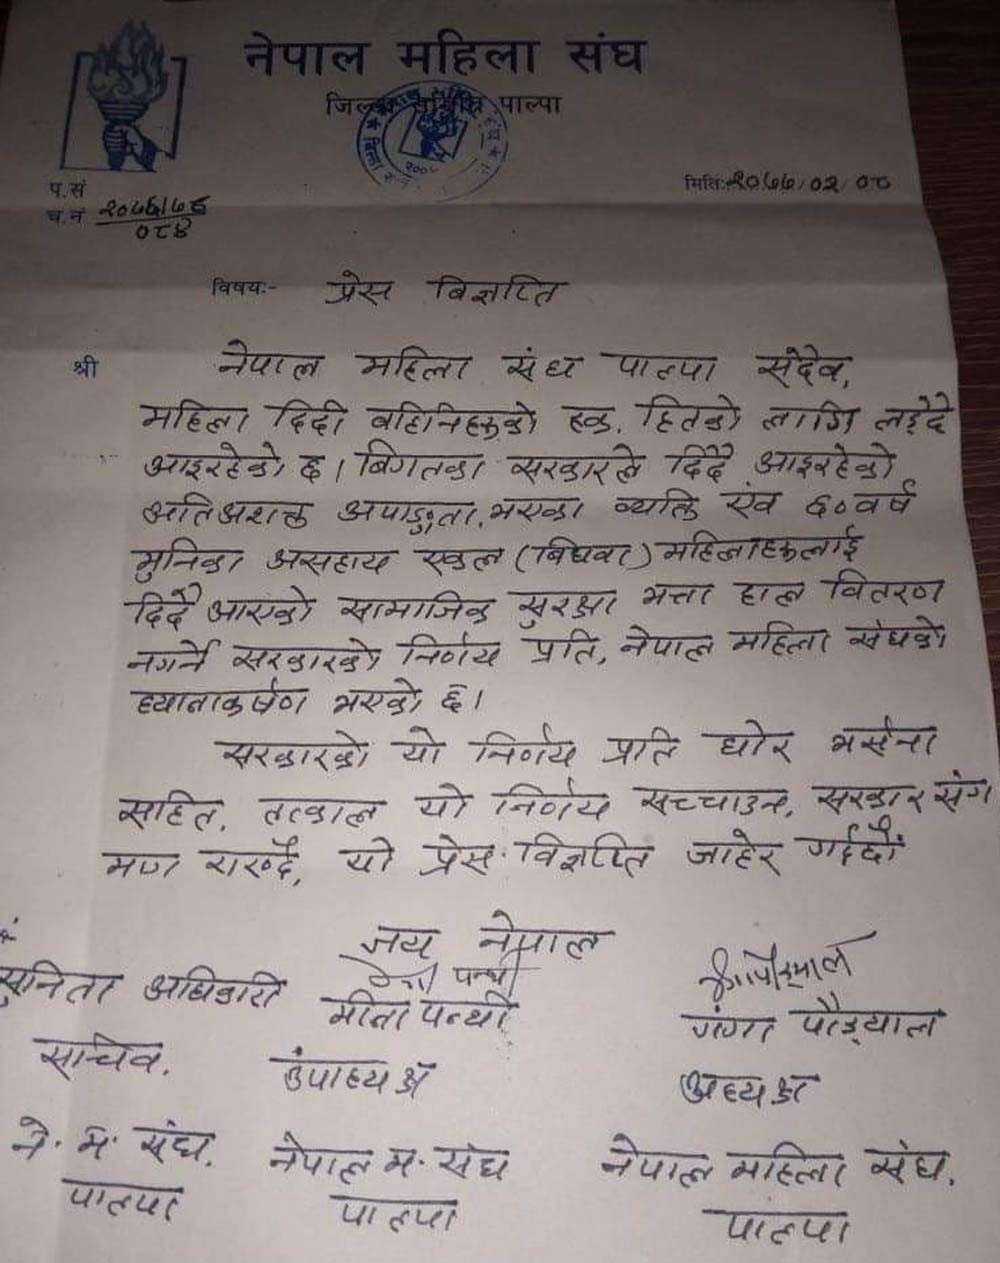 नेपाल महिला संघ
जिल्ला समिति पाल्पा
प.सं
मितिः-२०७७/०२/०८
च.नं २०७६/७७
०८४
विषयः- प्रेस बिज्ञप्ति
श्री
नेपाल महिला संघ पाल्पा सदैव,
महिला दिदी बहिनिहरुको हक, हितको लागि लड्दै
आइरहेको छ। बिगतका सरकारले दिदै आइरहेको
अतिअशक्त अपाङ्गता, भएका व्यक्ति एंव ६० वर्ष
मुनिका असहाय एकल (बिधवा) महिलाहरुलाई
दिदै आएको सामाजिक सुरक्षा भत्ता हाल वितरण
नगर्ने सरकारको निर्णय प्रति, नेपाल महिला संघको
ध्यानाकर्षण भएको छ।
सरकारको यो निर्णय प्रति घोर भर्सना
सहित, तत्काल यो निर्णय सच्चाउन, सरकार संग
माग राख्दै, यो प्रेस बिज्ञप्ति जाहेर गर्दछौं
जय नेपाल
सुनिता अधिकारी
मीना पन्थी
गंगा पौड्याल
सचिव.
उपाध्यक्ष
अध्यक्ष
ने. म. संघ.
नेपाल म. संघ
नेपाल महिला संघ.
पाल्पा
पाल्पा
पाल्पा